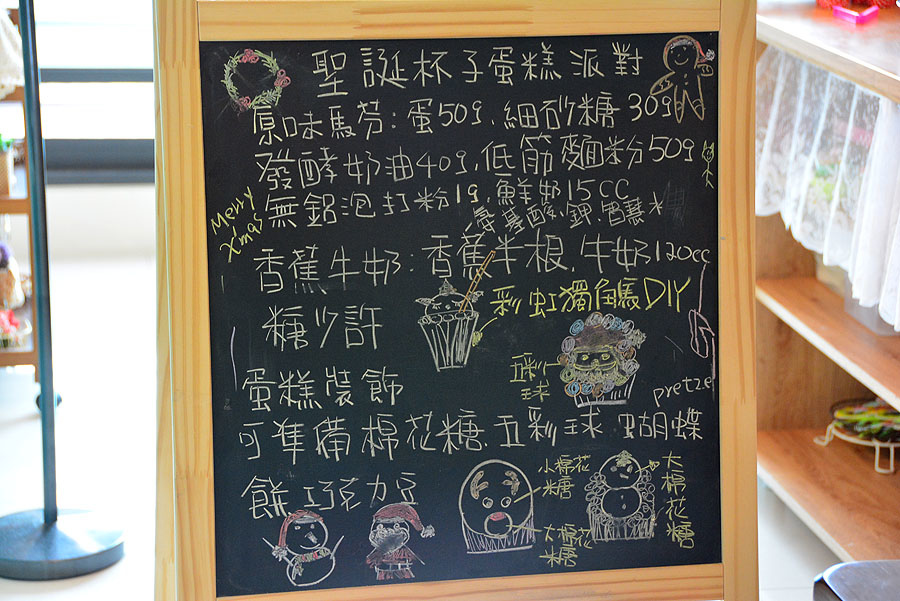 聖誕杯子蛋糕派對
原味馬芬:蛋50g.細砂糖30g
發酵奶油40g,低筋麵粉50g
無鋁泡打粉1g.鮮奶15cc
Merry
X'mas
香蕉牛奶:香蕉半根.牛奶120cc
糖少許
彩虹獨角馬DIY
五彩
球
pretzel
蛋糕裝飾
可準備棉花糖.五彩球.蝴蝶
餅.巧克力豆
小棉花
糖
大棉花
糖
大棉花糖